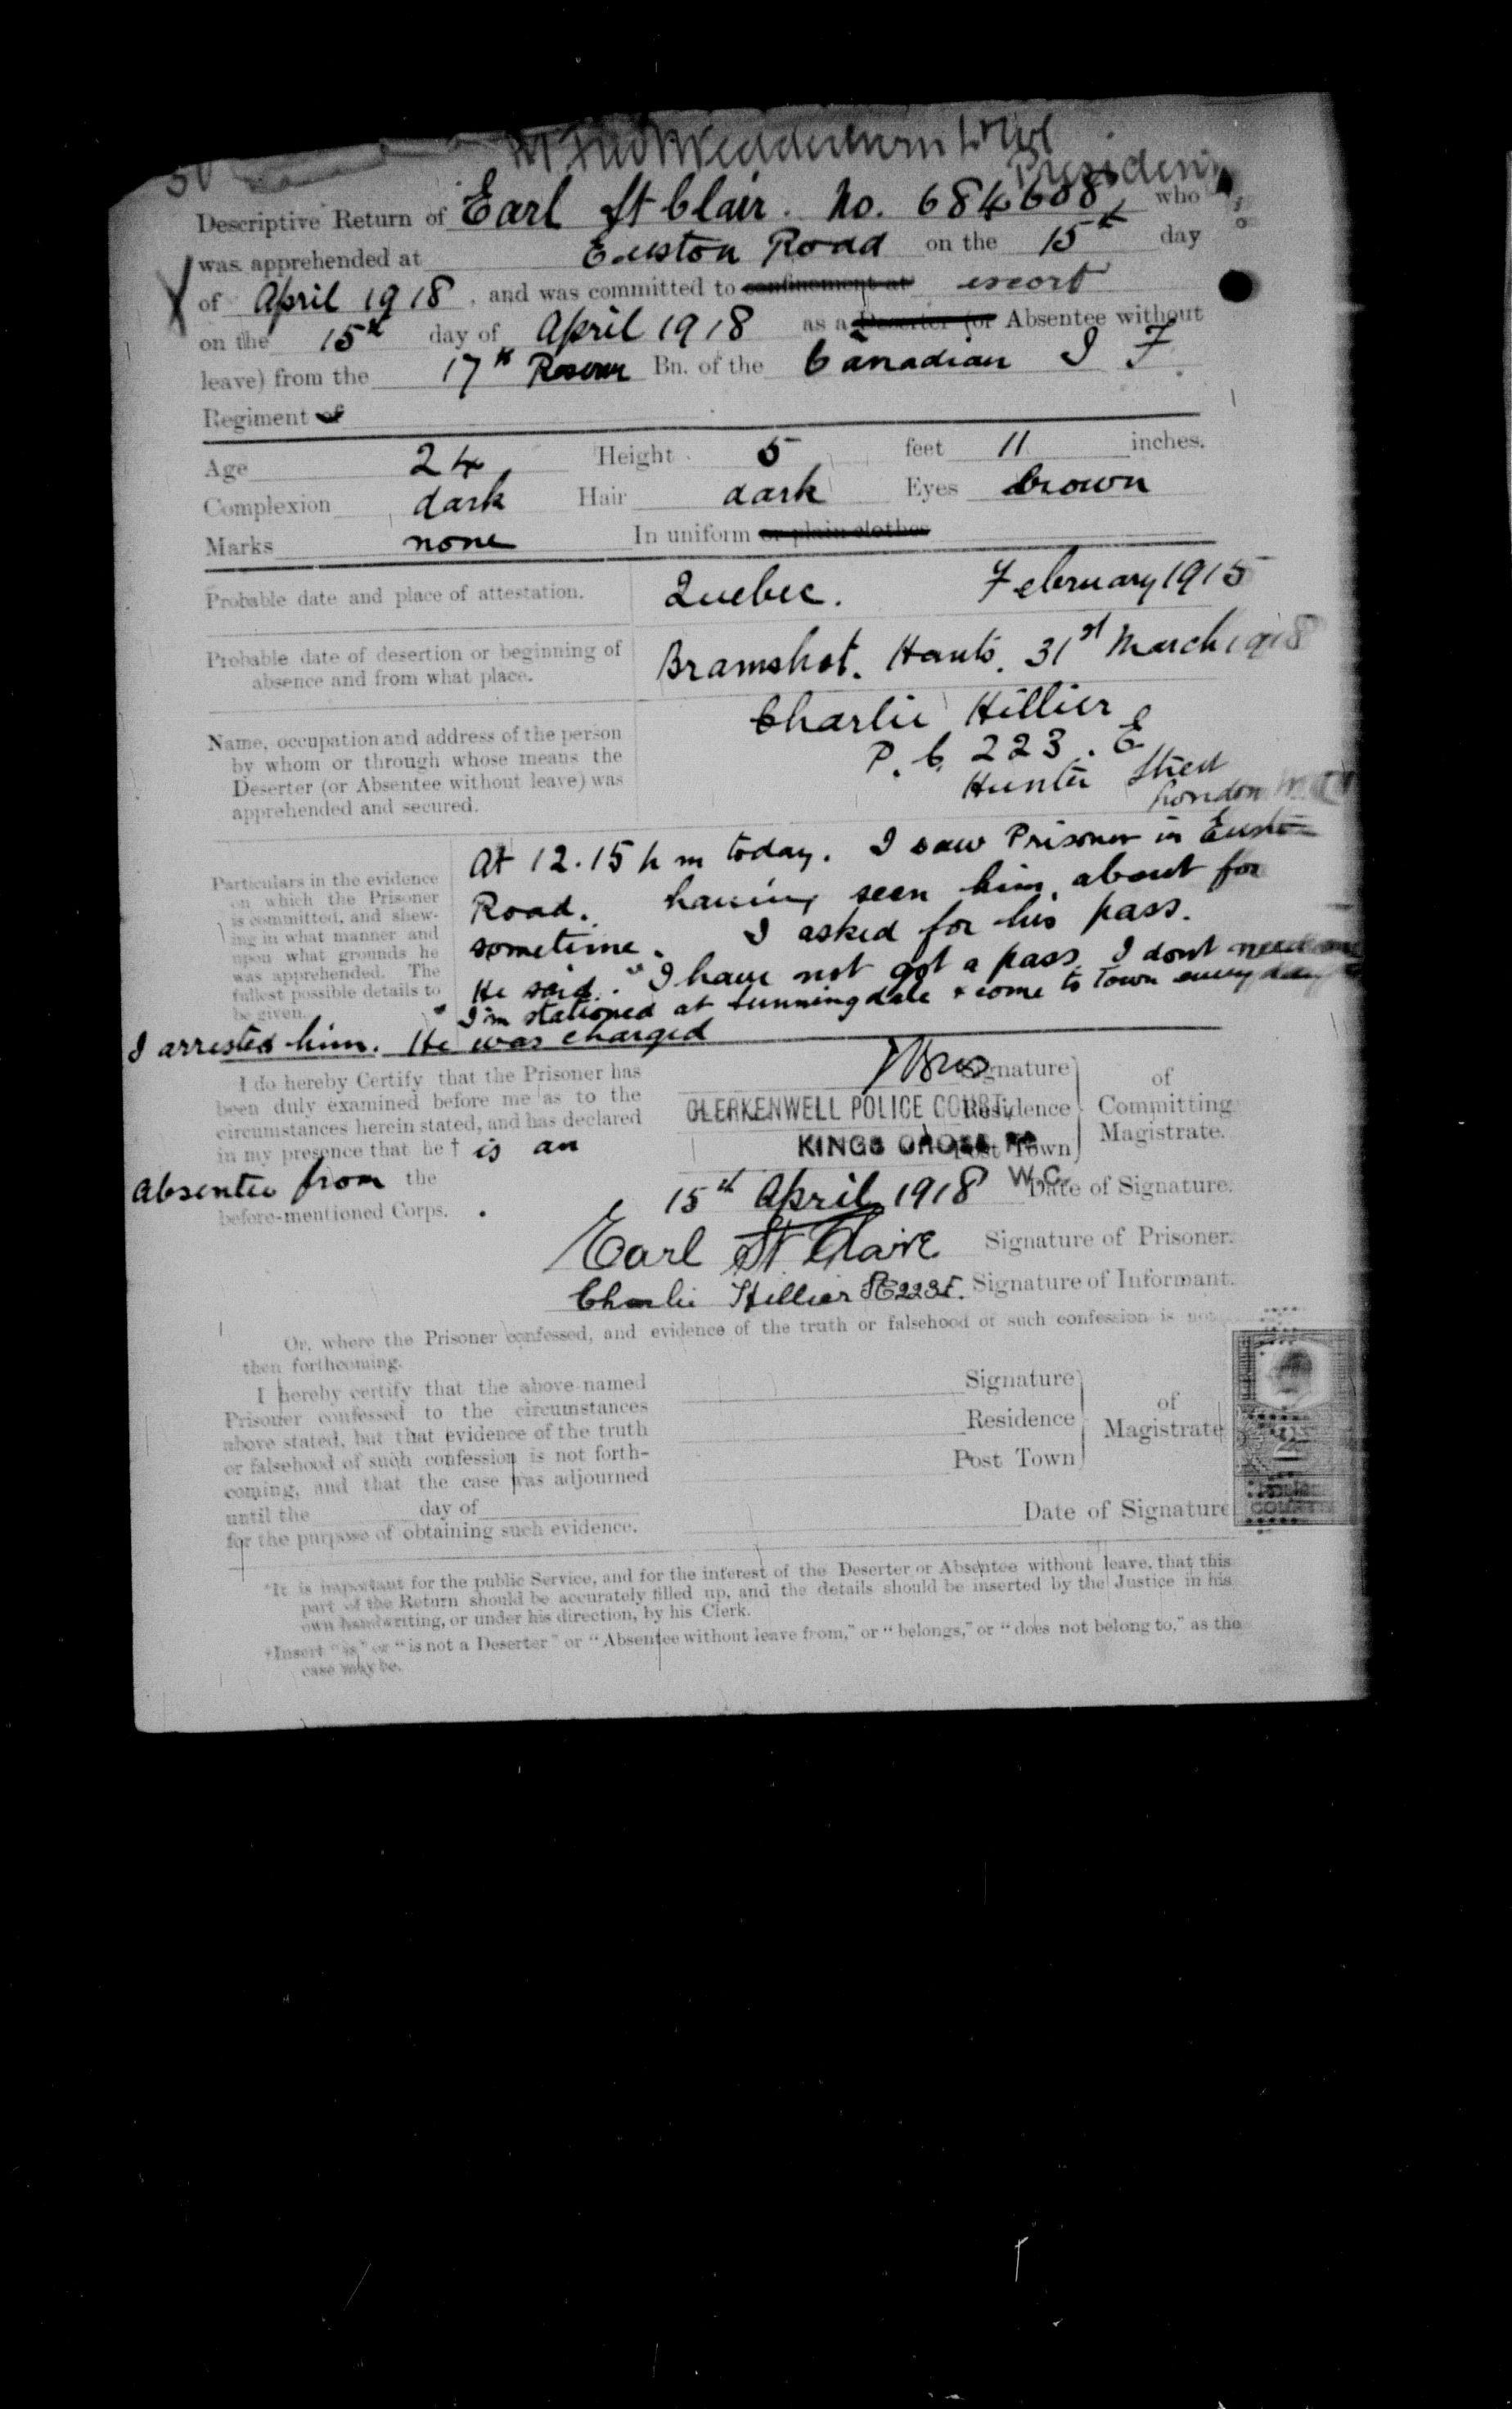 President
Descriptive Return of Earl St Clair. No. 684608, who
was apprehended at Euston Road on the 15th day
of April 1918, and was committed to confinement at escort
on the 15th day of April 1918 as a Deserter (or Absentee without
leave) from the 17th Reserve Bn. of the Canadian I F
Regiment of
Age 24 Height 5 feet 11 inches.
Complexion dark Hair dark Eyes brown
Marks none In uniform or plain clothes
Probable date and place of attestation. Quebec. February 1915
Probable date of desertion or beginning of
absence and from what place. Bramshot. Hants. 31st March 1918
Name, occupation and address of the person
by whom or through whose means the
Deserter (or Absentee without leave) was
apprehended and secured.
Charlie Hillier
P.C. 223. E
Hunter Street
London
Particulars in the evidence
on which the Prisoner
is committed, and shew-
ing in what manner and
upon what grounds he
was apprehended. The
fullest possible details to
be given.
At 12.15 p m today. I saw Prisoner in Euston
Road. having seen him about for
sometime. I asked for his pass.
He said. "I have not got a pass I dont need one
I'm stationed at Sunningdale & come to Town every day
I arrested him. He was charged
I do hereby Certify that the Prisoner has
been duly examined before me as to the
circumstances herein stated, and has declared
in my presence that he † is an
Absentee from the
before-mentioned Corps.
Signature
CLERKENWELL POLICE COURT, Residence
KINGS CROSS RD Post Town
W.C.
of
Committing
Magistrate.
15th April 1918 Date of Signature.
Earl St Claire Signature of Prisoner.
Charlie Hillier PC223E. Signature of Informant.
Or, where the Prisoner confessed, and evidence of the truth or falsehood of such confession is not
then forthcoming.
I hereby certify that the above-named
Prisoner confessed to the circumstances
above stated, but that evidence of the truth
or falsehood of such confession is not forth-
coming, and that the case was adjourned
until the day of
for the purpose of obtaining such evidence.
Signature
Residence
Post Town
of
Magistrate
Date of Signature
*It is important for the public Service, and for the interest of the Deserter or Absentee without leave, that this
part of the Return should be accurately filled up, and the details should be inserted by the Justice in his
own handwriting, or under his direction, by his Clerk.
†Insert "is" or "is not a Deserter" or "Absentee without leave from," or "belongs," or "does not belong to," as the
case may be.